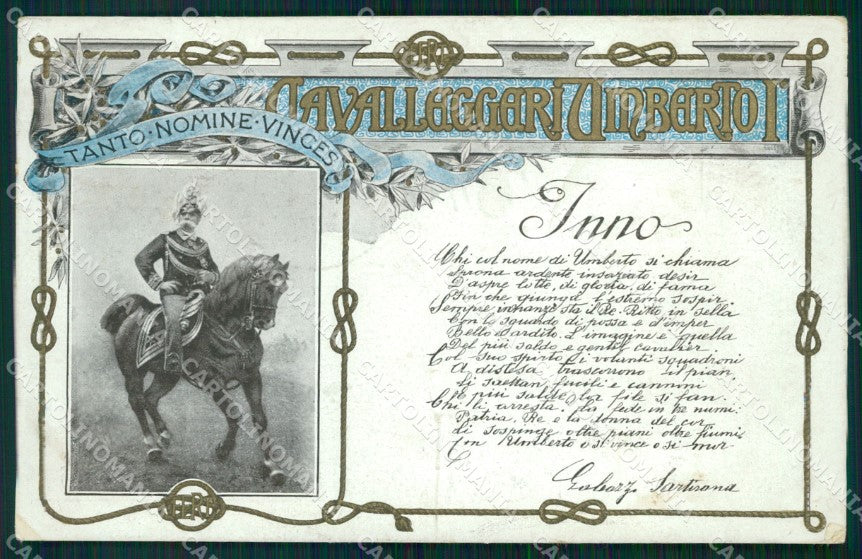 CAVALLEGGERI UMBERTO I
TANTO · NOMINE · VINCES
FERT
Inno
Chi col nome di Umberto si chiama
Sprona ardente insaziato desir
D'aspre lotte, di gloria, di fama
Fin che giunga l'estremo sospir
Sempre innanzi sta il Re. Ritto in sella
Con lo sguardo di possa e d'imper
Bello ardito. L'imagine è quella
Del più saldo e gentil cavalier
Col Suo spirto i volanti squadroni
A distesa trascorrono il pian
Li saettan fucili e cannoni
E più salde le file si fan.
Chi li arresta? La fede in tre numi:
Patria, Re e la donna del cor
Li sospinge oltre piani oltre fiumi
Con Umberto o si vince o si mor
FERT
CARTOLINOMANIA